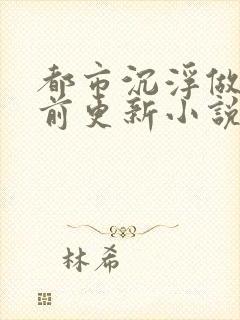 都市沉浮做
前更新小說
林希